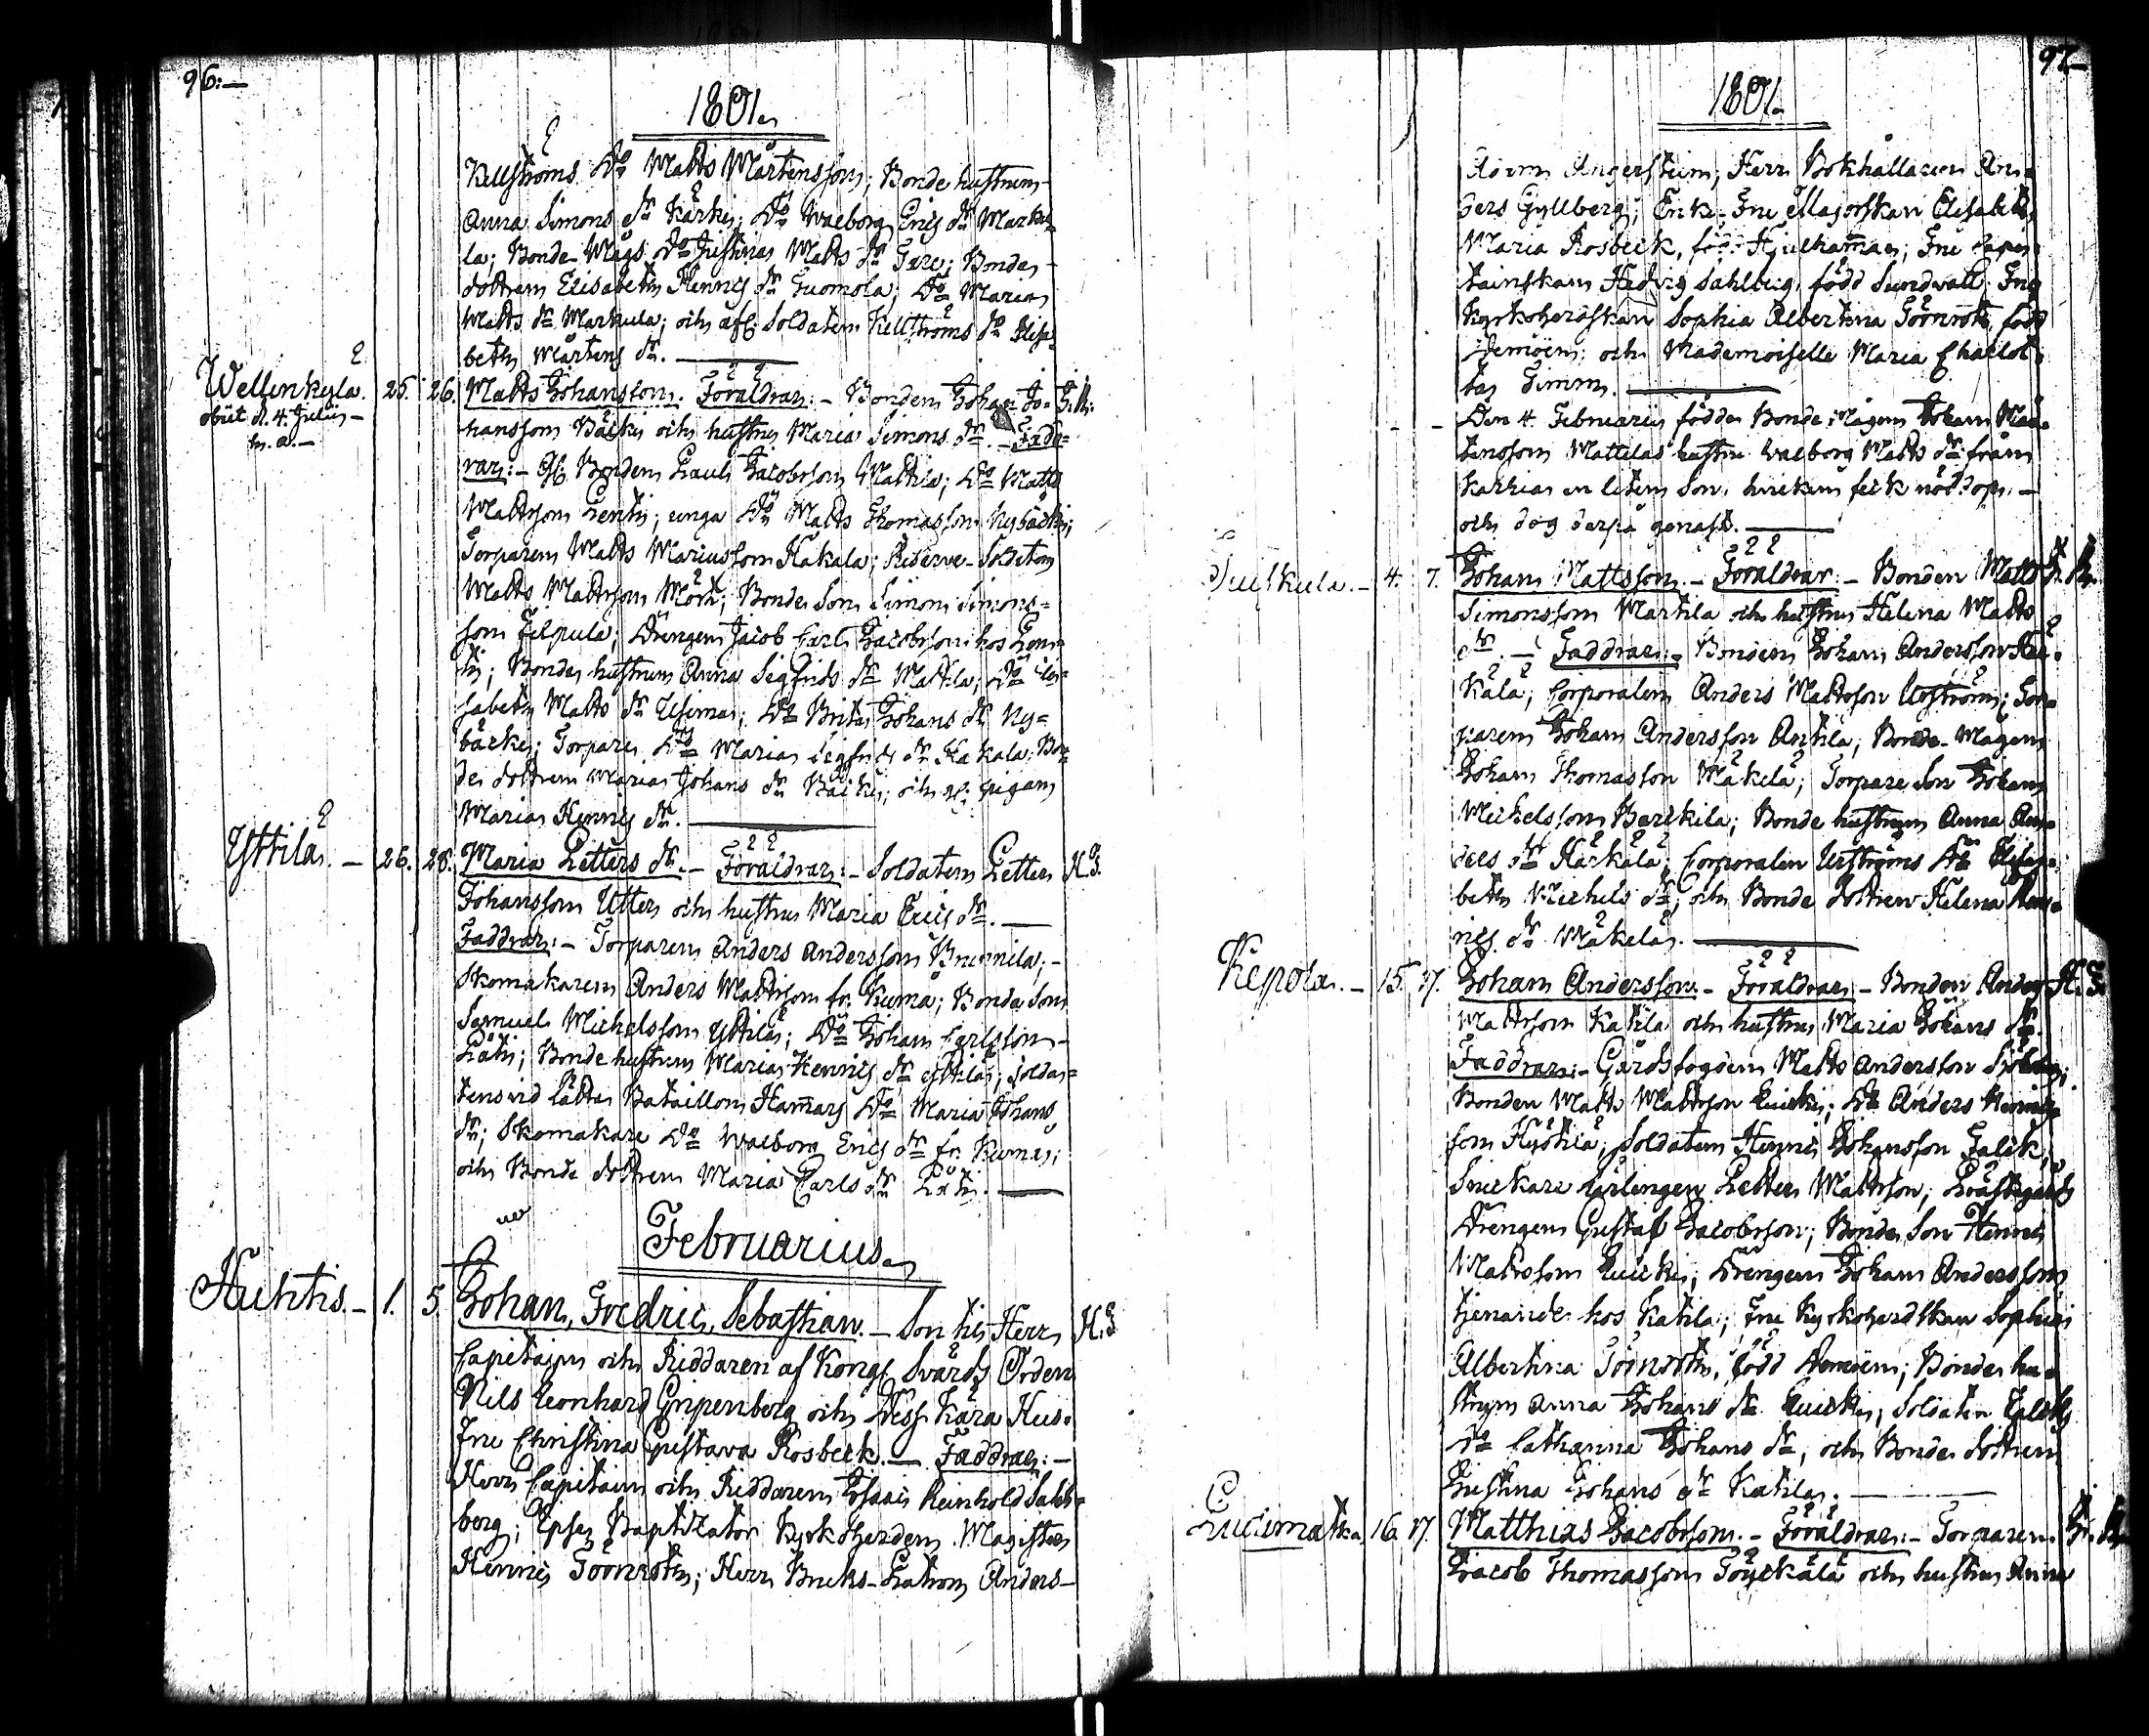 96:—
1801.
Kellströms D:o Matts Mårtensson; Bonde hustrun
Anna Simons d:r Kärki; D:o Walborg Erics d:r Marku-
la; Bonde Mågs D:o Justina Matts d:r
dottren Elisabeth Henrics d:r Tuomola; D:o Maria
Matts d:r Markula; och afsk: Soldaten Kellströms d:o Elisa-
beth Mårtens d:r.
Wellenkylä. 25. 26. Matts Johansson. Föräldrar:- Bonden Johan Jo-
obiit d. 4. Julii
h. a.
hansson Bäcki och hustru Maria Simons d:r. - Fadd-
rar:- Bonden Paul Jacobsson Mattila; D:o Matts
Mattsson Lentti; unga D:o Matts Thomasson Nybäcki;
Torparen Matts Mariusson Hakala; Reserve-Soldaten
Matts Mattsson Mört; Bonde Son Simon Simons-
son Filpula; Drengen Jacob Carl Jacobsson hos Len-
ti; Bonde hustrun Anna Sigfrids d:r Mattila; D:o Eli-
sabeth Matts d:r; D:o Brita Johans d:r Ny-
bäcki; Torpare D:o Maria Sigfrids d:r Hakala; Bon-
de dottren Maria Johans d:r Bäcki; och pigan
Maria Henrics d:r.
Yttilä. — 26. 28. Maria Petters d:r. - Föräldrar:- Soldaten Petter H. T.
Johansson Utter och hustru Maria Erics d:r. —
Faddrar:- Torparen Anders Andersson Brunnila; -
Skomakaren Anders Mattsson fr. Kumo; Bonde Son
Samuel Michelsson Yttilä; D:o Johan Carlsson
Päti; Bonde hustrun Maria Henrics d:r Yttilä; Solda-
tens vid lätta Bataillon Hamars D:o Maria Johans
d:r; Skomakare D:o Walborg Erics d:r fr. Kumo;
och Bonde dottren Maria Carls d:r Päti. —
Februarius.
Huhtis. — 1. 5. Johan, Fredric, Sebastian. — Son till Herr H. T.
Capitain och Riddaren af Kongl. Svärds Orden
Nils Leonhard Gripenberg och Dess Kära Hus-
fru Christina Gustava Rosbeck. — Faddrar:-
Herr Capitain och Riddaren Reinhold Sahl-
berg; Ipse Baptizator Kyrkoherden Magister
Henric Töörnroth; Herr Bruks-Patron Anders
97
1801.
Angerstein; Herr Bokhållaren An-
ders Gyllberg; Enke-Fru Majorskan Elisabeth
Maria Rosbeck, född Hjulhammar; Fru Capi-
tainskan Hedvig Sahlberg, född Sundvall; Fru
Kyrkoherdskan Sophia Albertina Töörnroth, född
och Mademoiselle Maria Charlot-
ta Timm.
Den 4. Februarius födde Bonde Mågen Johan Mår-
tensson Mattilas hustru Walborg Matts d:r från
en liten Son, hvilken fick nöddop —
och dog derpå genast.
4. 7. Johan Mattsson. — Föräldrar:- Bonden Matts
Simonsson Martila och hustru Helena Matts
d:r. — Faddrar:- Bonden Johan Andersson Här-
kälä; Corporalen Anders Mattsson Urström; Tor-
paren Johan Andersson Anttila; Bonde-Mågen
Johan Thomasson Mäkelä; Torpare Son Johan
Michelsson Berckila; Bonde hustrun Anna An-
ders d:r Härkälä; Corporalen Urströms D:o Elisa-
beth Michels d:r; och Bonde dottren Helena Hen-
rics d:r Mäkelä.
Kepola. — 15. 17. Johan Andersson. - Föräldrar:- Bonden Anders H. T.
Mattsson Katila och hustru Maria Johans d:r.
Faddrar:- Gårdsfogden Matts Andersson
Bonden Matts Mattsson; D:o Anders Henrics-
son; Soldaten Henric Johansson Falck;
Snickare Lärlingen Petter Mattsson; Prästegårds
Drengen Gustaf Jacobsson; Bonde Son Henric
Mattsson; Drengen Johan Andersson
tjenande hos Katila; Fru Kyrkoherdskan Sophia
Albertina Töörnroth, född; Bonde hu-
strun Anna Johans d:r; Soldaten Falcks
D:o Catharina Johans d:r; och Bonde dottren
Justina Johans d:r Katila.
16. 17. Matthias Jacobsson. - Föräldrar:- Torparen
Jacob Thomasson och hustru Anna